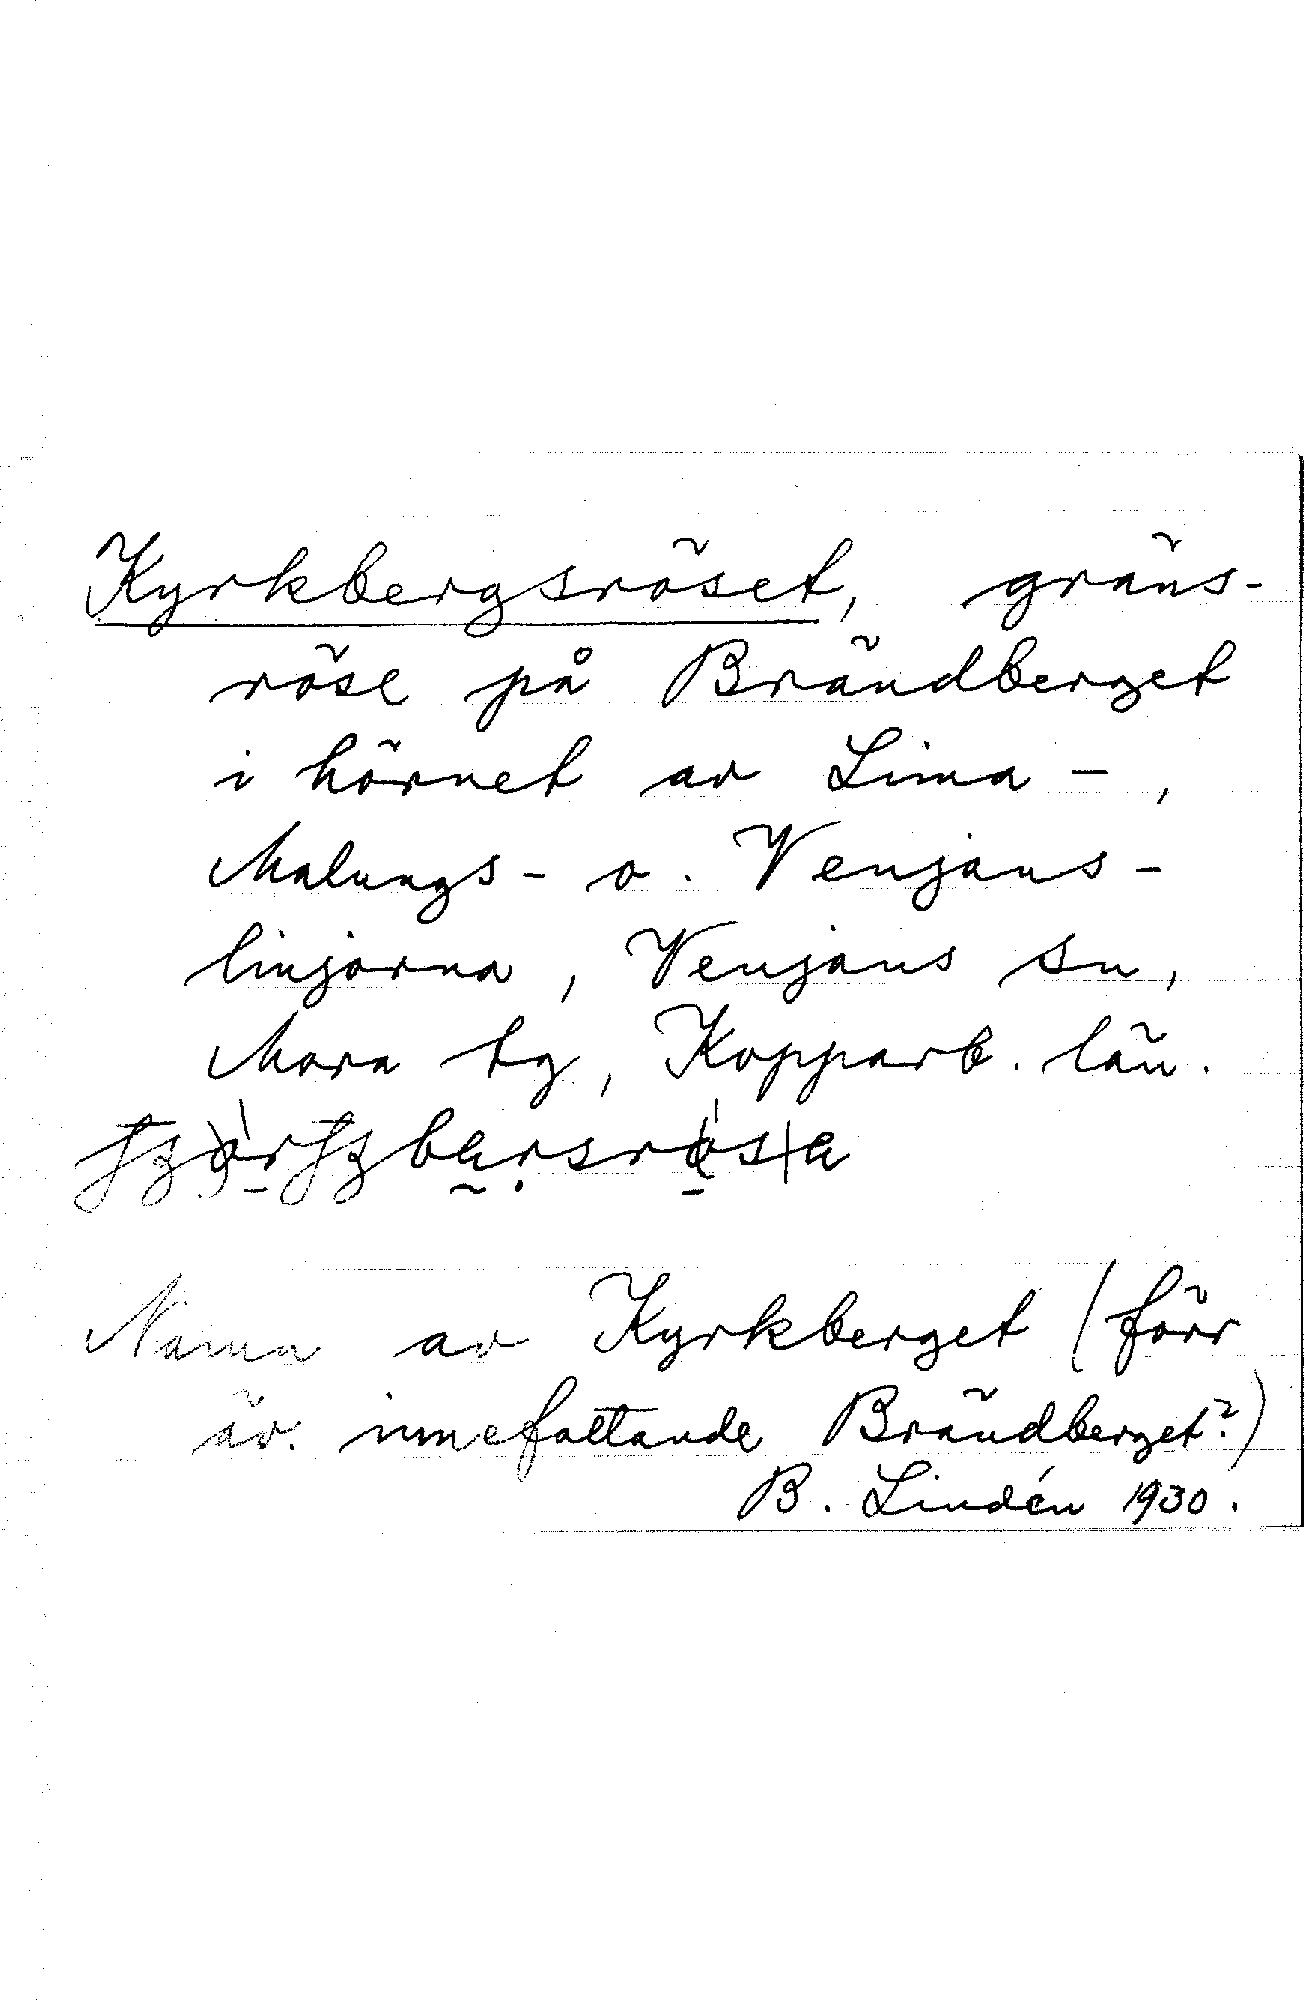 Kyrkbergsröset, gräns-
röse på Brändberget
i hörnet av Lima-,
Malungs- o. Venjans-
linjorna, Venjans sn,
Mora tg, Kopparb. län.
Namn av Kyrkberget (förr
äv. innefattande Brändberget?)
B. Lindén 1930.